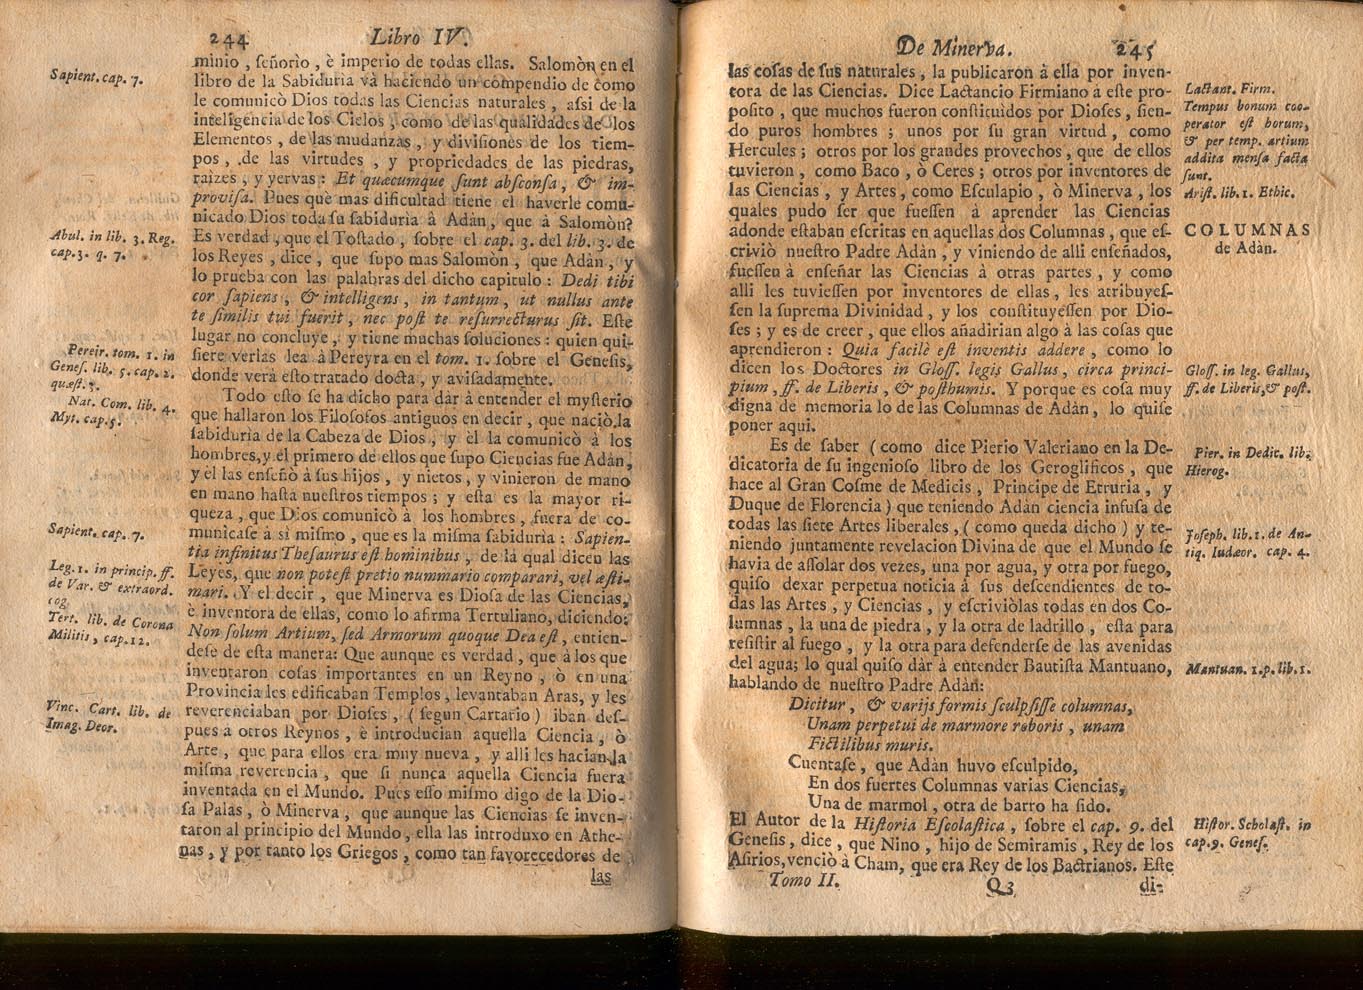 244 Libro IV.
minio, ſeñorio, è imperio de todas ellas. Salomòn en el
libro de la Sabiduria và haciendo un compendio de como
le comunicò Dios todas las Ciencias naturales, aſsi de la
inteligencia de los Cielos, como de las qualidades de los
Elementos, de las mudanzas, y diviſiones de los tiem-
pos, de las virtudes, y propriedades de las piedras,
raìzes, y yervas: Et quæcumque ſunt abſconſa, & im-
proviſa. Pues què mas dificultad tiene el haverle comu-
nicado Dios toda ſu ſabiduria à Adàn, que à Salomòn?
Es verdad, que el Toſtado, ſobre el cap. 3. del lib. 3. de
los Reyes, dice, que ſupo mas Salomòn, que Adàn, y
lo prueba con las palabras del dicho capitulo: Dedi tibi
cor ſapiens, & intelligens, in tantum, ut nullus ante
te ſimilis tui fuerit, nec poſt te reſurrecturus ſit. Eſte
lugar no concluye, y tiene muchas ſoluciones: quien qui-
ſiere verlas lea à Pereyra en el tom. 1. ſobre el Geneſis,
donde verà eſto tratado docta, y aviſadamente.
Todo eſto ſe ha dicho para dàr à entender el myſterio
que hallaron los Filoſofos antiguos en decir, que naciò la
ſabiduria de la Cabeza de Dios, y èl la comunicò à los
hombres, y el primero de ellos que ſupo Ciencias fue Adàn,
y èl las enſeñò à ſus hijos, y nietos, y vinieron de mano
en mano haſta nueſtros tiempos; y eſta es la mayor ri-
queza, que Dios comunicò à los hombres, fuera de co-
municaſe à sì miſmo, que es la miſma ſabiduria: Sapien-
tia infinitus Theſaurus eſt hominibus, de la qual dicen las
Leyes, que non poteſt pretio nummario comparari, vel æſti-
mari. Y el decir, que Minerva es Dioſa de las Ciencias,
è inventora de ellas, como lo afirma Tertuliano, diciendo:
Non ſolum Artium, ſed Armorum quoque Dea eſt, entien-
deſe de eſta manera: Que aunque es verdad, que à los que
inventaron coſas importantes en un Reyno, ò en una
Provincia les edificaban Templos, levantaban Aras, y les
reverenciaban por Dioſes, (ſegun Cartario) iban deſ-
pues a otros Reynos, è introducian aquella Ciencia, ò
Arte, que para ellos era muy nueva, y alli les hacian la
miſma reverencia, que ſi nunca aquella Ciencia fuera
inventada en el Mundo. Pues eſſo miſmo digo de la Dio-
ſa Palas, ò Minerva, que aunque las Ciencias ſe inven-
taron al principio del Mundo, ella las introduxo en Athe-
nas, y por tanto los Griegos, como tan favorecedores de
las
Sapient. cap. 7.
Abul. in lib. 3. Reg.
cap. 3. q. 7.
Pereir. tom. 1. in
Geneſ. lib. 5. cap. 2.
quæſt. 3.
Nat. Com. lib. 4.
Myt. cap. 5.
Sapient. cap. 7.
Leg. 1. in princip. ff.
de Var. & extraord.
cog.
Tert. lib. de Corona
Militis, cap. 12.
Vinc. Cart. lib. de
Imag. Deor.
De Minerva. 245
las coſas de ſus naturales, la publicaron à ella por inven-
tora de las Ciencias. Dice Lactancio Firmiano à eſte pro-
poſito, que muchos fueron conſtituìdos por Dioſes, ſien-
do puros hombres; unos por ſu gran virtud, como
Hercules; otros por los grandes provechos, que de ellos
tuvieron, como Baco, ò Ceres; otros por inventores de
las Ciencias, y Artes, como Eſculapio, ò Minerva, los
quales pudo ſer que fueſſen à aprender las Ciencias
adonde eſtaban eſcritas en aquellas dos Columnas, que eſ-
criviò nueſtro Padre Adàn, y viniendo de alli enſeñados,
fueſſen à enſeñar las Ciencias à otras partes, y como
alli les tuvieſſen por inventores de ellas, les atribuyeſ-
ſen la ſuprema Divinidad, y los conſtituyeſſen por Dio-
ſes; y es de creer, que ellos añadirian algo à las coſas que
aprendieron: Quia facilè eſt inventis addere, como lo
dicen los Doctores in Gloſſ. legis Gallus, circa princi-
pium, ff. de Liberis, & poſthumis. Y porque es coſa muy
digna de memoria lo de las Columnas de Adàn, lo quiſe
poner aqui.
Es de ſaber (como dice Pierio Valeriano en la De-
dicatoria de ſu ingenioſo libro de los Geroglificos, que
hace al Gran Coſme de Medicis, Principe de Etruria, y
Duque de Florencia) que teniendo Adàn ciencia infuſa de
todas las ſiete Artes liberales, (como queda dicho) y te-
niendo juntamente revelacion Divina de que el Mundo ſe
havia de aſſolar dos vezes, una por agua, y otra por fuego,
quiſo dexar perpetua noticia à ſus deſcendientes de to-
das las Artes, y Ciencias, y eſcriviòlas todas en dos Co-
lumnas, la una de piedra, y la otra de ladrillo, eſta para
reſiſtir al fuego, y la otra para defenderſe de las avenidas
del agua; lo qual quiſo dàr à entender Bautiſta Mantuano,
hablando de nueſtro Padre Adàn:
Dicitur, & varijs formis ſculpſiſſe columnas,
Unam perpetui de marmore roboris, unam
Fictilibus muris.
Cuentaſe, que Adàn huvo eſculpido,
En dos fuertes Columnas varias Ciencias,
Una de marmol, otra de barro ha ſido.
El Autor de la Hiſtoria Eſcolaſtica, ſobre el cap. 9. del
Geneſis, dice, que Nino, hijo de Semiramis, Rey de los
Aſirios, venciò à Cham, que era Rey de los Bactrianos. Eſte
Tomo II. Q3 di-
Lactant. Firm.
Tempus bonum coo-
perator eſt horum,
& per temp. artium
addita menſa facta
ſunt.
Ariſt. lib. 1. Ethic.
COLUMNAS
de Adàn.
Gloſſ. in leg. Gallus,
ff. de Liberis, & poſt.
Pier. in Dedic. lib.
Hierog.
Joſeph. lib. 1. de An-
tiq. Iudæor. cap. 4.
Mantuan. 1. p. lib. 1.
Hiſtor. Scholaſt. in
cap. 9. Geneſ.